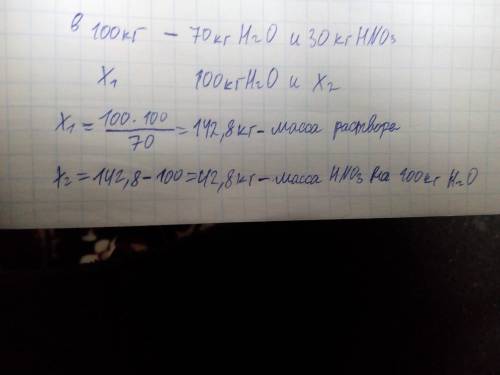 в 100кг – 70кг H₂O и 30кг HNO₃
X₁ 100кг H₂O и X₂
X₁ = 100·100/70 = 142,8кг – масса раствора
X₂ = 142,8 – 100 = 42,8кг – масса HNO₃ на 100кг H₂O